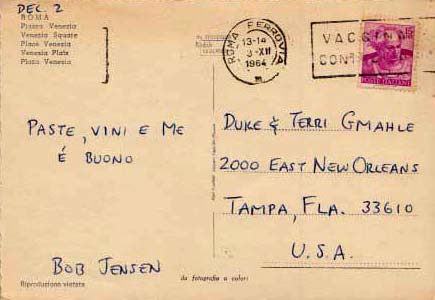 DEC. 2
ROMA
Piazza Venezia
Venezia Square
Place Venezia
Venezia Platz
Plaza Venezia
ROMA FERROVIA
13-14
3-XII
1964
VACCINA
CON
15
POSTE ITALIANE
PASTE, VINI E ME
É BUONO
BOB JENSEN
DUKE & TERRI GMAHLE
2000 EAST NEW ORLEANS
TAMPA, FLA. 33610
U.S.A.
da fotografia a colori
Riproduzione vietata